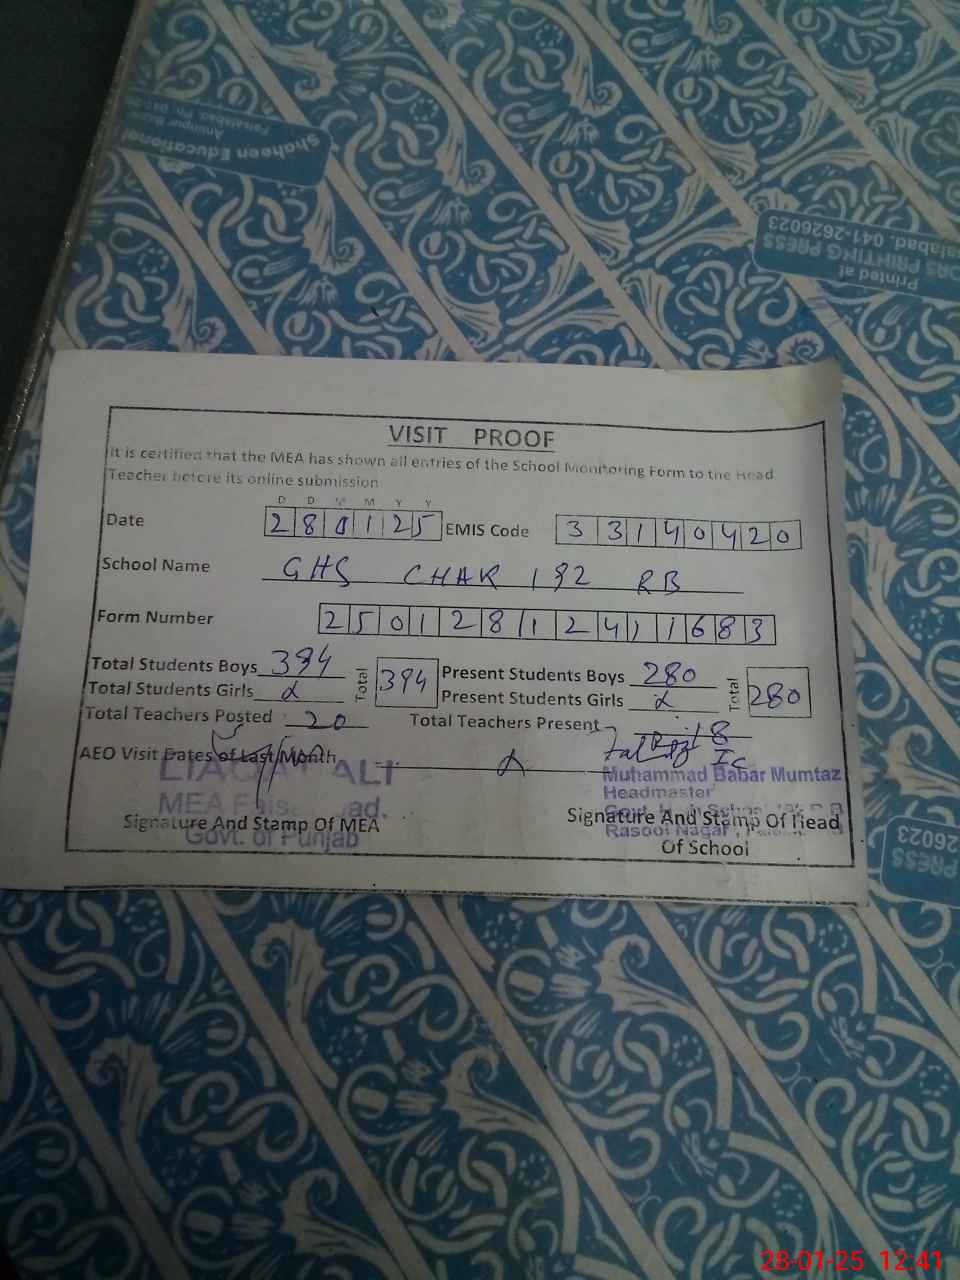 Shaheen Educational
Faisalabad.
Printed at
PRINTING PRESS
041-2626023
VISIT PROOF
It is certified that the MEA has shown all entries of the School Monitoring Form to the Head
Teacher before its online submission
D D M M Y Y
Date 280125 EMIS Code 33140420
School Name GHS CHAK 192 RB
Form Number 25012812411683
Total Students Boys 394 Total 394 Present Students Boys 280 Total 280
Total Students Girls Present Students Girls
Total Teachers Posted 20 Total Teachers Present 18
AEO Visit Dates of Last Month
LIAQAT ALI
MEA
Govt. of Punjab
Signature And Stamp Of MEA
Muhammad Babar Mumtaz
Headmaster
Rasool Nagar,
Signature And Stamp Of Head
Of School
26023
PRESS
28-01-25 12:41